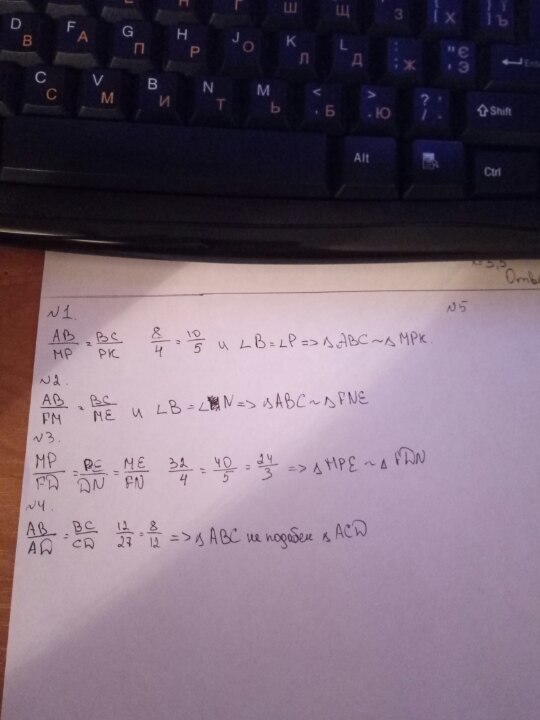 Ш Щ З { [ Х } ] Ъ
D В F А G П H Р J О K Л L Д : ; Ж "Є ' Э Enter
C С V М B И N Т M Ь < , Б > . Ю ? / . ⇧Shift
Alt Ctrl
№1. №5
AB/MP = BC/PK 8/4 = 10/5 и ∠B = ∠P => △ABC ~ △MPK.
№2.
AB/FM = BC/ME и ∠B = ∠N => △ABC ~ △FNE
№3.
MP/FD = PE/DN = ME/FN 32/4 = 40/5 = 24/3 => △MPE ~ △FDN
№4.
AB/AD = BC/CD 12/27 = 8/12 => △ABC не подобен △ACD